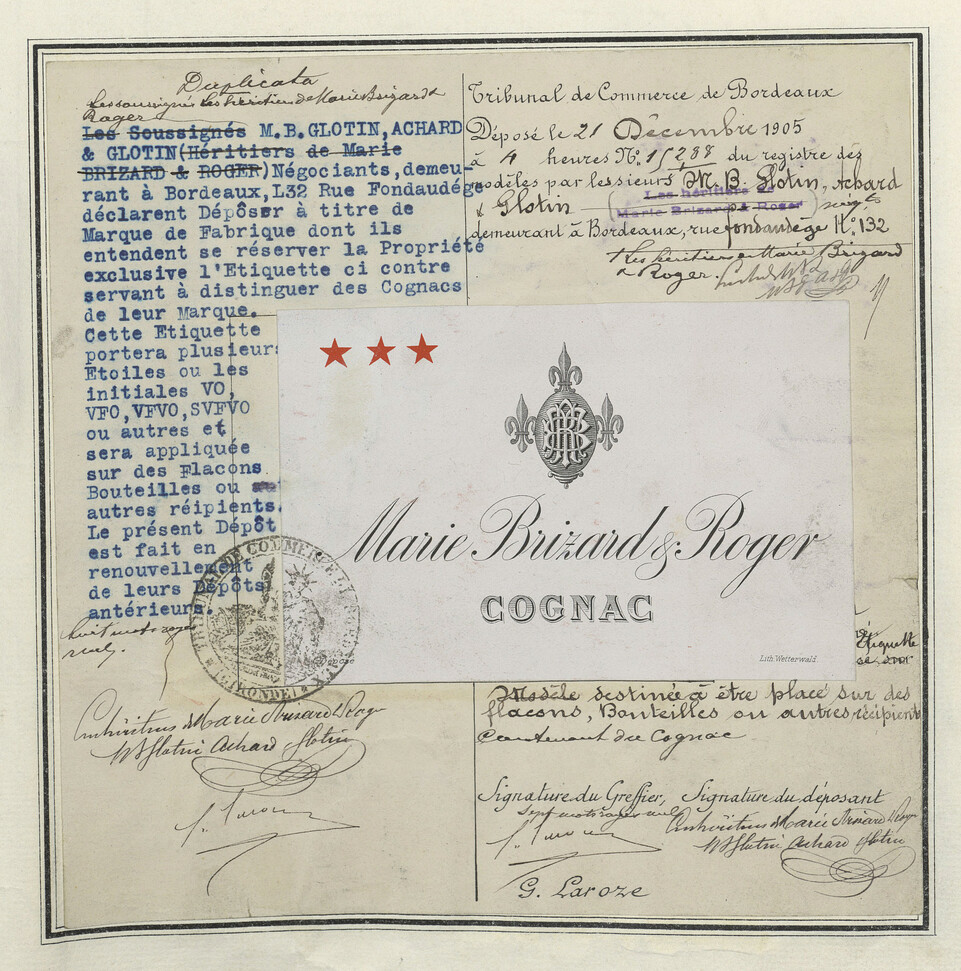 Duplicata
Les soussignés Les héritiers de Marie Brizard &
Roger
Les Soussignés M.B.GLOTIN,ACHARD
& GLOTIN(Héritiers de Marie
BRIZARD & ROGER)Négociants,demeu-
rant à Bordeaux,L32 Rue Fondaudège
déclarent Dépôser à titre de
Marque de Fabrique dont ils
entendent se réserver la Propriété
exclusive l'Etiquette ci contre
servant à distinguer des Cognacs
de leur Marque.
Cette Etiquette
portera plusieurs
Etoiles ou les
initiales VO,
VFO,VFVO,SVFVO
ou autres et
sera appliquée
sur des Flacons
Bouteilles ou
autres réipients.
Le présent Dépôt
est fait en
renouvellement
de leurs Dépôts
antérieurs.
huit mots rayés
nuls.
Les héritiers de Marie Brizard & Roger
M B Glotin Achard Glotin
Tribunal de Commerce de Bordeaux
Déposé le 21 Décembre 1905
à 4 heures No. 15288 du registre des
modèles par les sieurs M. B. Glotin, Achard
& Glotin (Les héritiers de
Marie Brizard & Roger)
demeurant à Bordeaux, rue fondaudège No. 132
Les héritiers de Marie Brizard
& Roger.
Marie Brizard & Roger
COGNAC
Lith. Wetterwald
TRIBUNAL DE COMMERCE DE BORDEAUX
(GIRONDE)
Etiquette
Modèle destinée à être placé sur des
flacons, Bouteilles ou autres récipients
Contenant du Cognac
Signature du Greffier, Signature du déposant
Sept mots rayés nuls
Les héritiers de Marie Brizard & Roger
M B Glotin Achard Glotin
G. Laroze